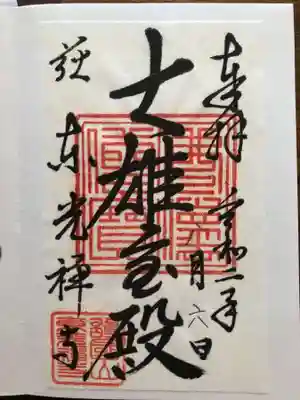 奉拝 令和二年
六月六日
大雄宝殿
萩 東光禅寺